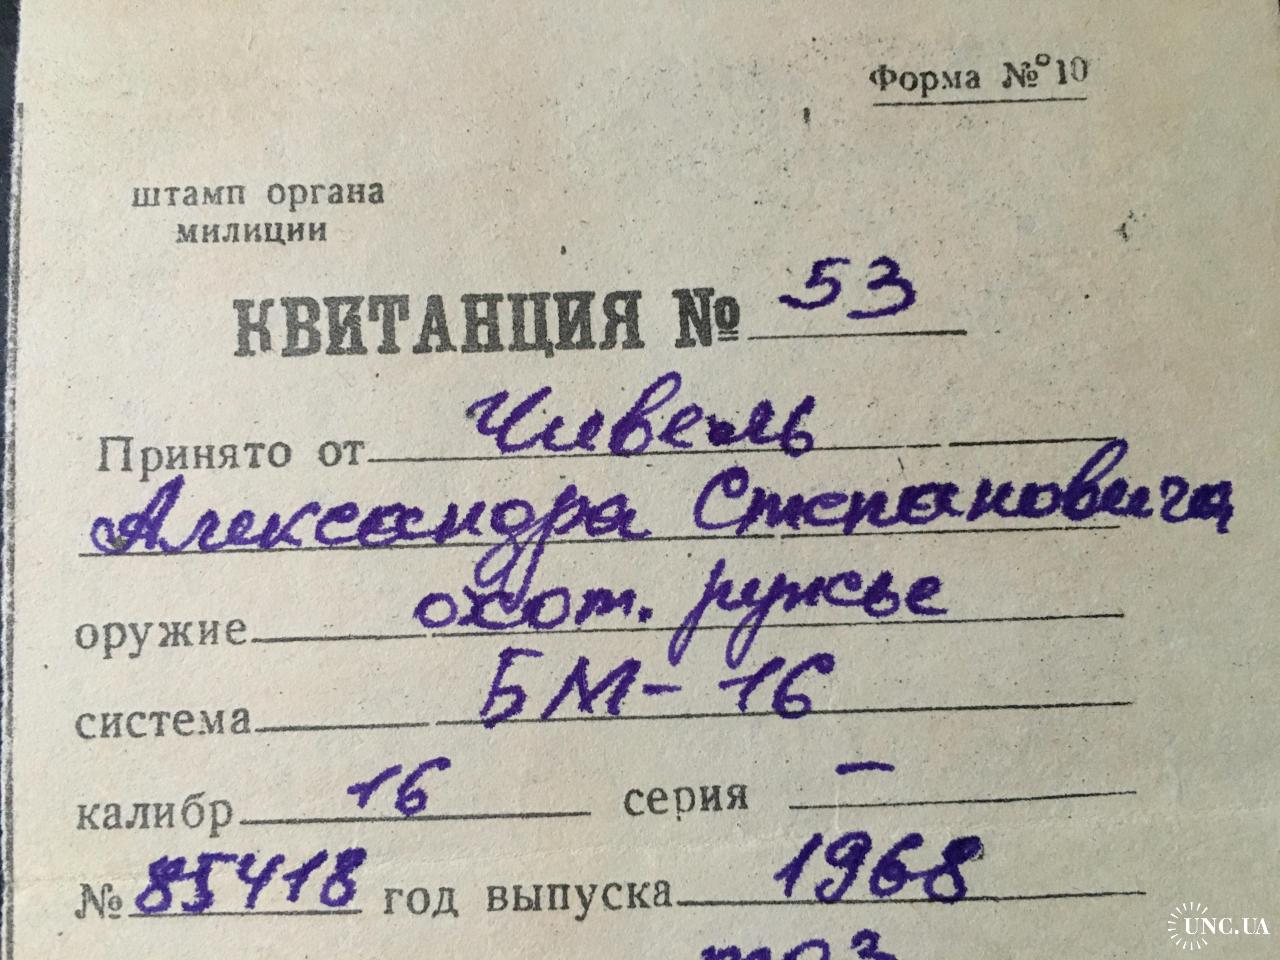 Форма № 10
штамп органа
милиции
КВИТАНЦИЯ № 53
Принято от Чивель
Александра Степановича
оружие охот. ружье
система БМ-16
калибр 16 серия —
№ 85418 год выпуска 1968
UNC.UA